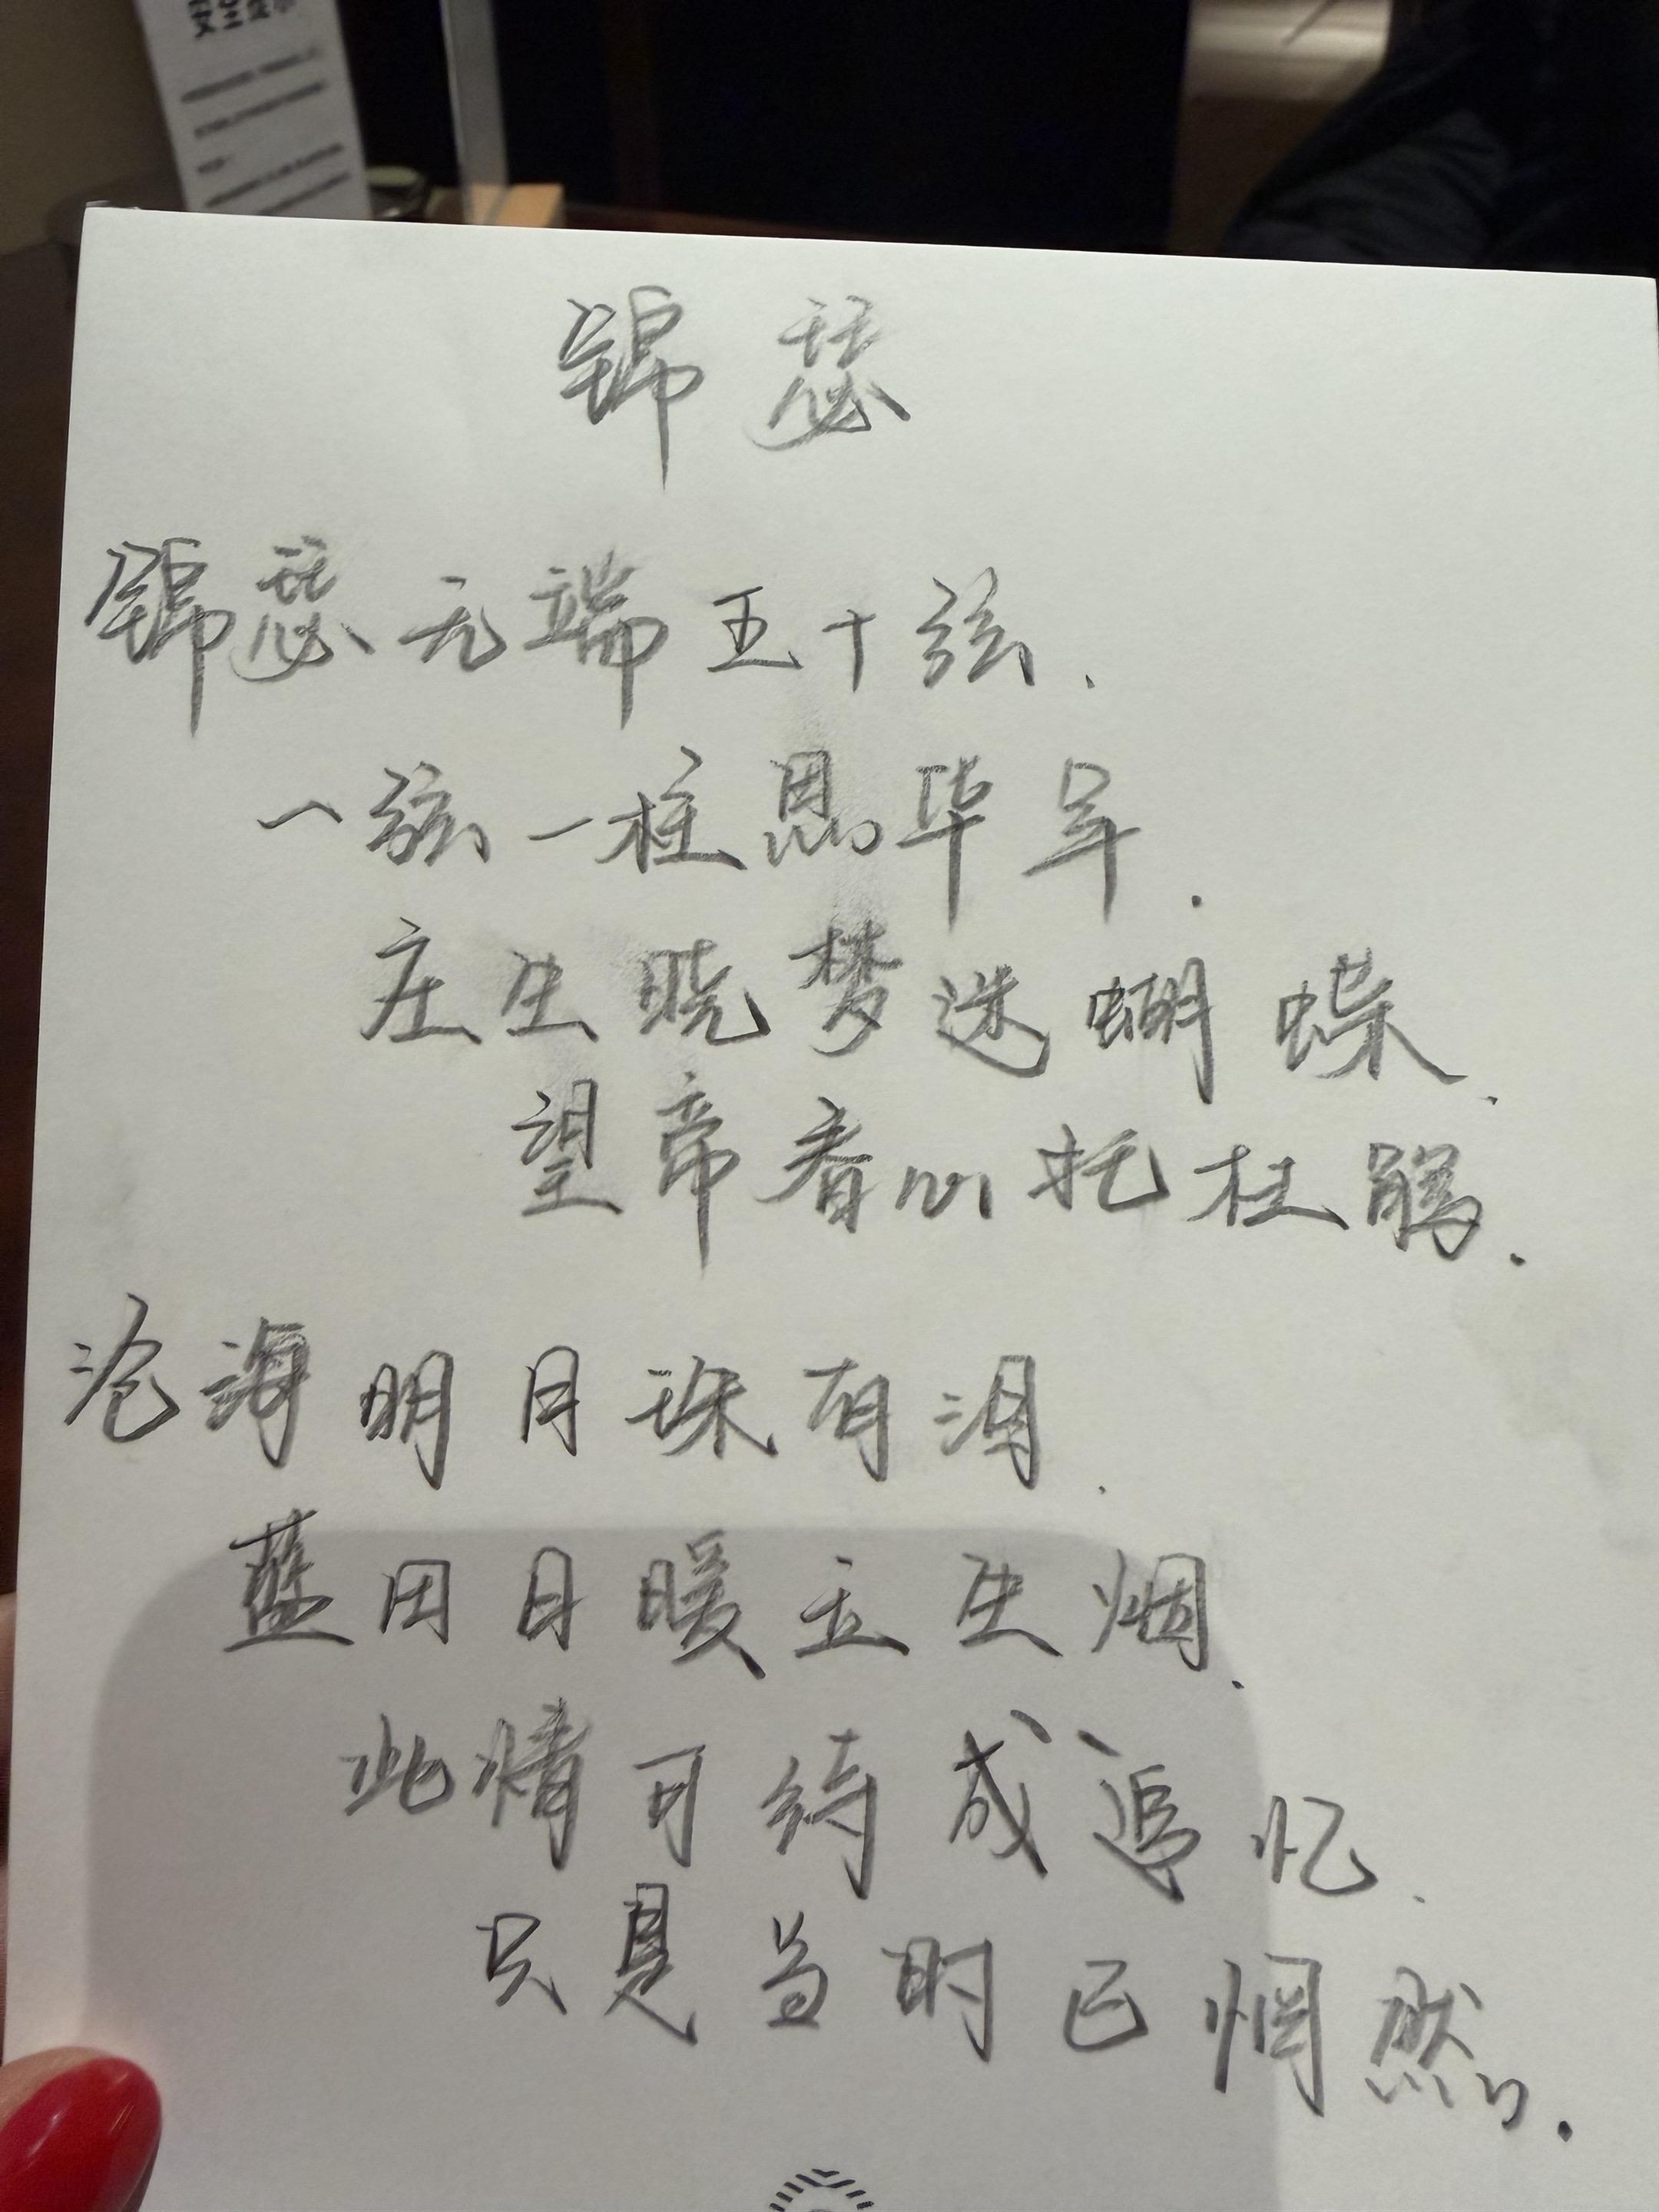 锦瑟
锦瑟无端五十弦.
一弦一柱思华年.
庄生晓梦迷蝴蝶.
望帝春心托杜鹃.
沧海明月珠有泪.
蓝田日暖玉生烟.
此情可待成追忆.
只是当时已惘然.